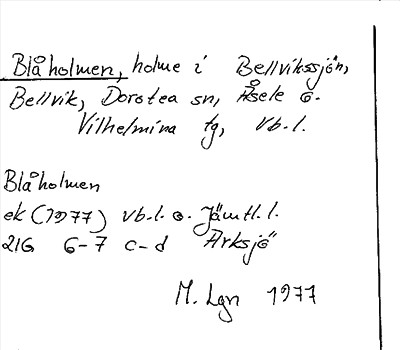 Blåholmen, holme i Bellvikssjön,
Bellvik, Dorotea sn, Åsele o.
Vilhelmina tg, Vb.l.
Blåholmen
ek (1977) Vb.l. o. Jämtl. l.
21G 6-7 c-d Arksjö
M. Lgn 1977